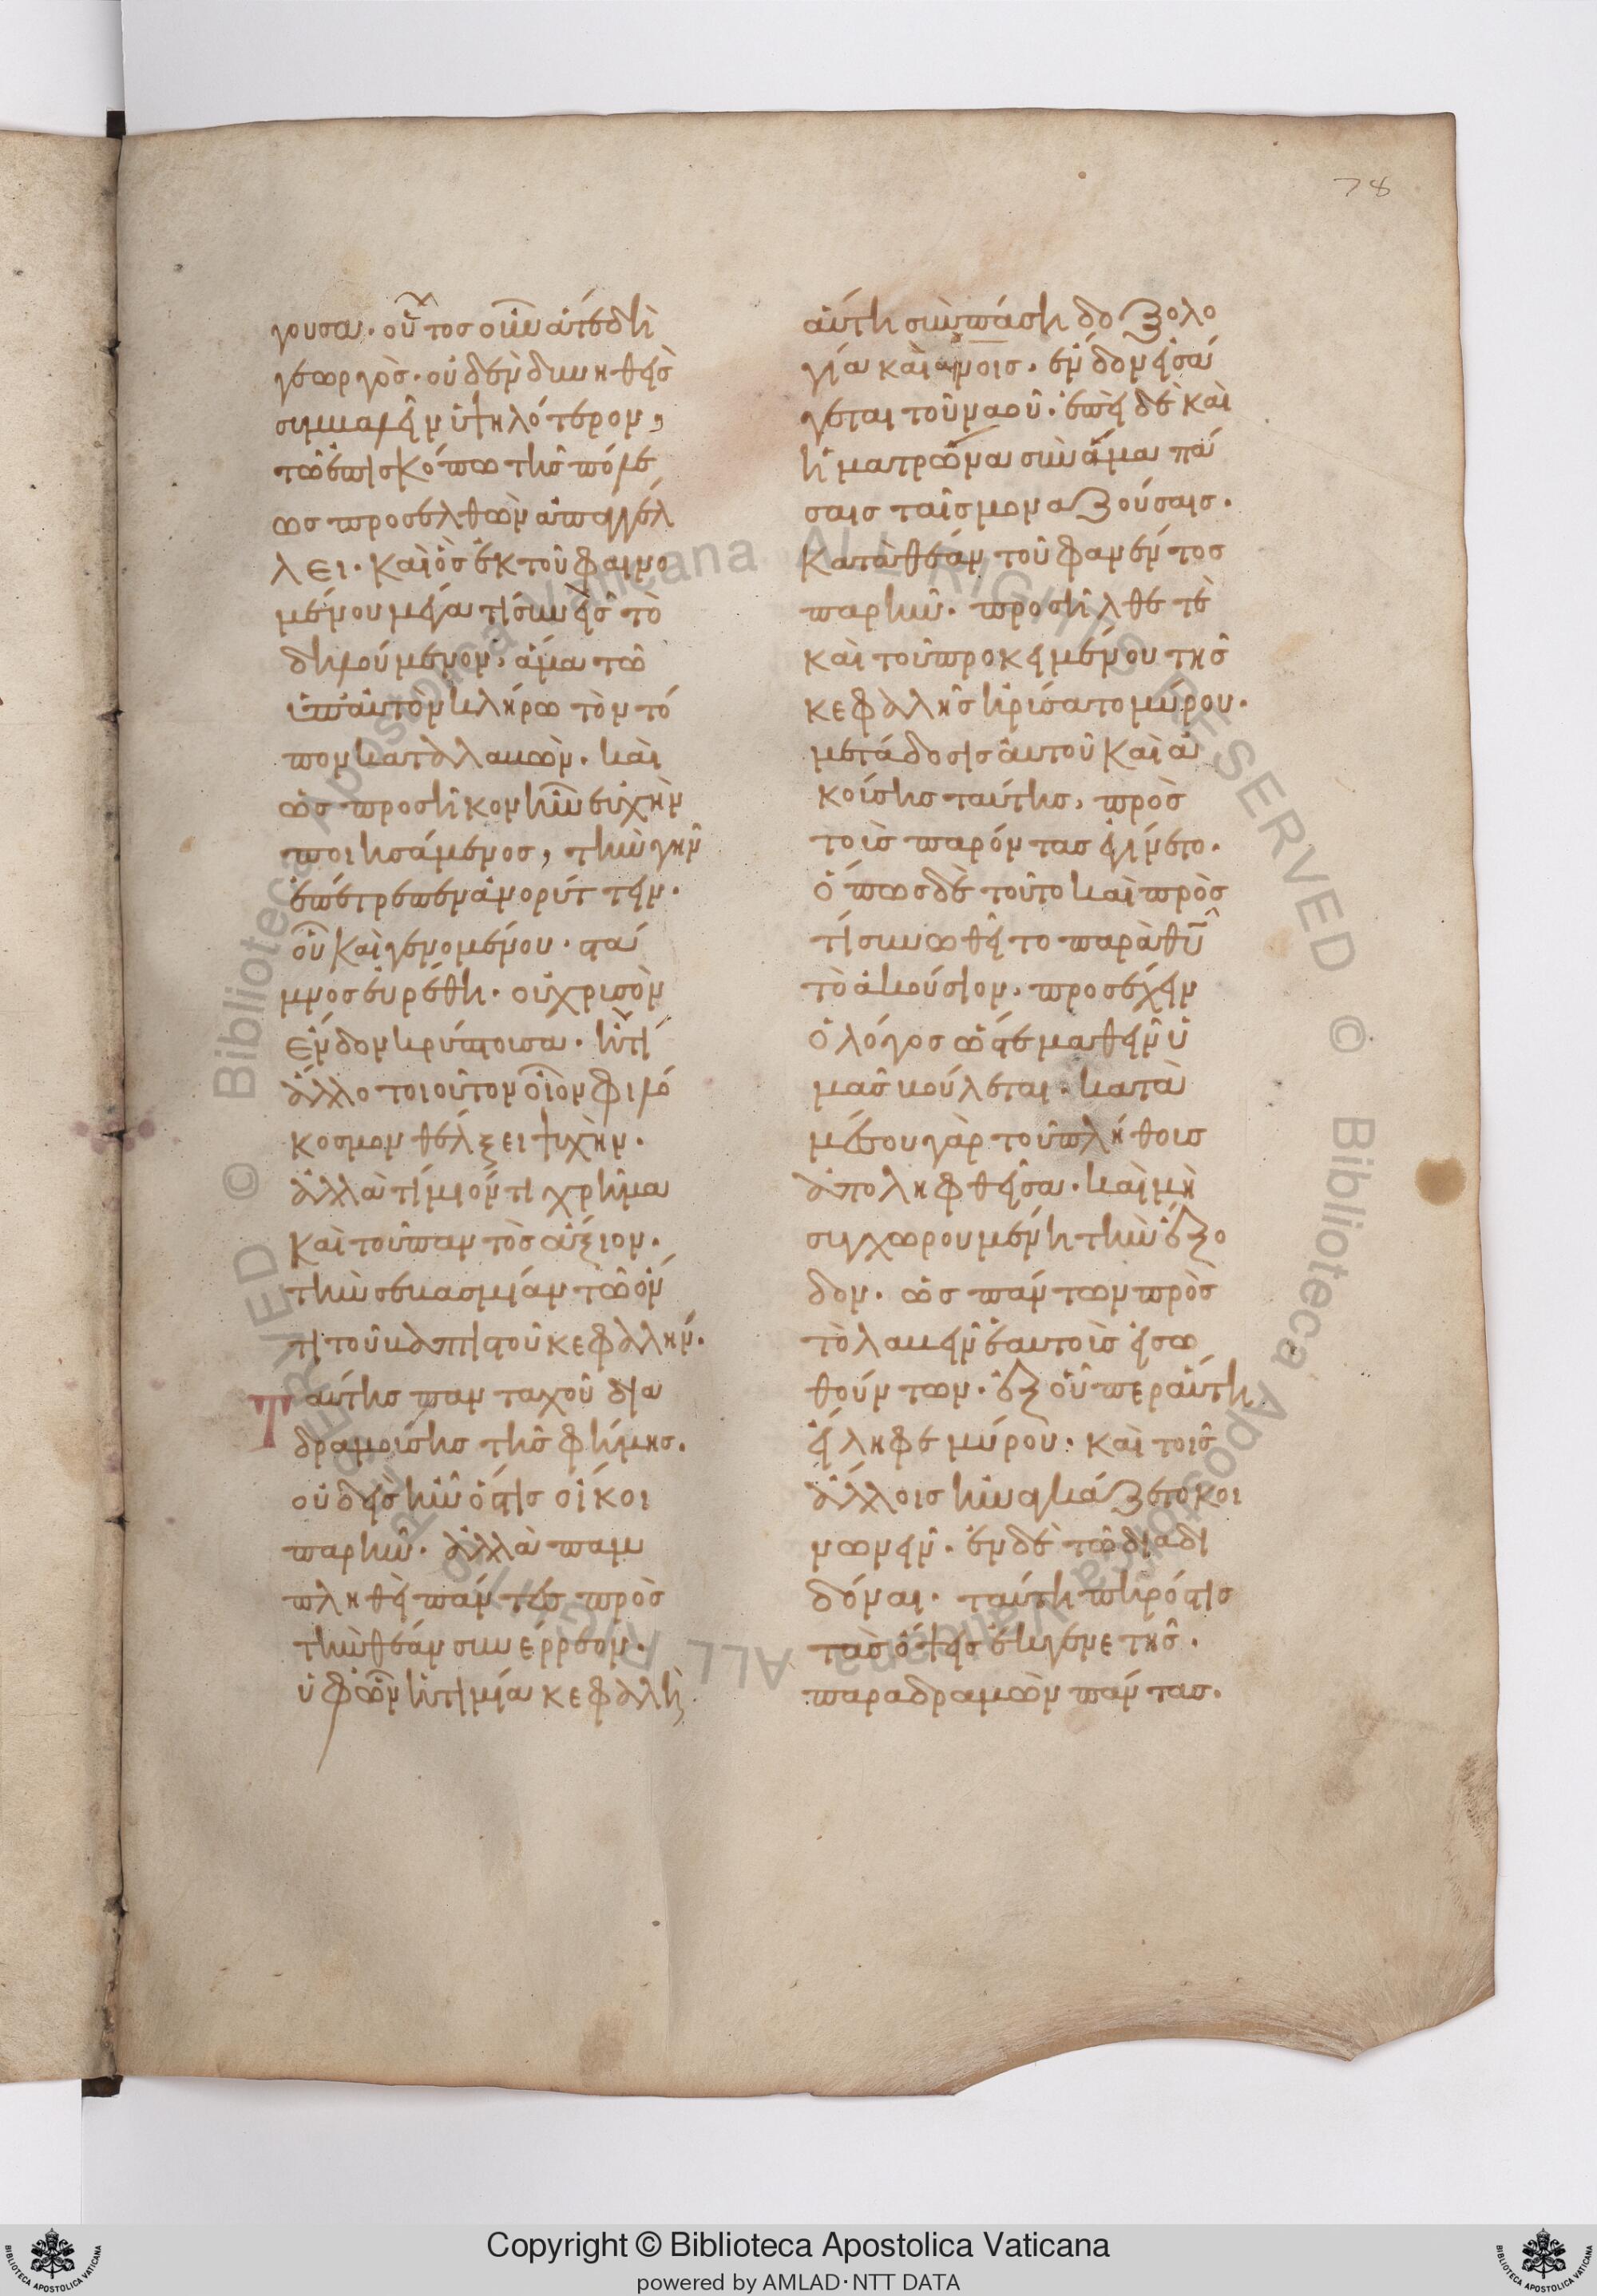 78
γουσα. οὗτος οὖν ἅτε δὴ
γεωργὸς. οὐδὲν διανηθεὶς
συμβαλεῖν ὑψηλότερον,
τῶ ἐπισκόπω τῆς πόλε
ως προσελθὼν ἀπαγγέλ
λει. καὶ ὃς ἐκ τοῦ φαινο
μένου μέγα τί συνεὶς τὸ
δηλούμενον, ἅμα τῶ
ὑπ' αὐτὸν κλήρω τὸν τό
πον καταλαβὼν. καὶ
ὡς προσῆκον ἦν εὐχὴν
ποιησάμενος, τὴν γῆν
ἐπέτρεπεν ἀνορύττειν.
οὗ καὶ γενομένου. στά
μνος εὑρέθη. οὐ χρυσὸν
ἔνδον κρύπτουσα. ἤ τι
ἄλλο τοιοῦτον οἷον φιλό
κοσμον θέλξει ψυχὴν.
ἀλλὰ τίμιον τι χρῆμα
καὶ τοῦ παντὸς ἄξιον.
τὴν σεβασμίαν τῶ ὄν
τι τοῦ βαπτιστοῦ κεφαλήν.
Ταύτης πανταχοῦ δια
δραμούσης τῆς φήμης.
οὐδεὶς ἦν ὅστις οἴκοι
παρῆν. ἀλλὰ παμ
πληθεὶ πάντες πρὸς
τὴν θέαν συνέρρεον.
ὑφ' ὧν ἡ τιμία κεφαλὴ
αὕτη σὺν πάση δοξολο
γία καὶ ὕμνοις. ἔνδον εἰσά
γεται τοῦ ναοῦ. ἐπεὶ δὲ καὶ
ἡ ματρῶνα σὺν ἅμα πά
σαις ταῖς μοναζούσαις.
κατὰ θέαν τοῦ φανέντος
παρῆν. προσῆλθέ τε
καὶ τοῦ προκειμένου τῆς
κεφαλῆς ἠρύσατο μύρου.
μετάδοσις αὐτοῦ καὶ ἀ
κούσης ταύτης, πρὸς
τοὺς παρόντας ἐγίνετο.
ὅπως δὲ τοῦτο καὶ πρὸς
τί συνωθεῖτο παρὰ θυ
τὸ ἀκούσιον, προσέχειν
ὁ λόγος ὥστε μαθεῖν ὑ
μᾶς βούλεται. κατὰ
μέσου γὰρ τοῦ πλήθους
ἀποληφθεῖσα. καὶ μὴ
συγχωρουμένη τὴν ἔξο
δον. ὡς πάντων πρὸς
τὸ λαβεῖν ἑαυτοὺς εἴσω
θούντων. ἐξ οὗπερ αὕτη
εἴληφε μύρου. καὶ τοῖς
ἄλλοις ἠναγκάζετο κοι
νωνεῖν. ἐν δὲ τῶ διαδι
δόναι. ταύτη πηρός τις
τὰς ὄψεις ἐκ γενετῆς.
παραδραμὼν πάντας.
Copyright © Biblioteca Apostolica Vaticana
powered by AMLAD·NTT DATA